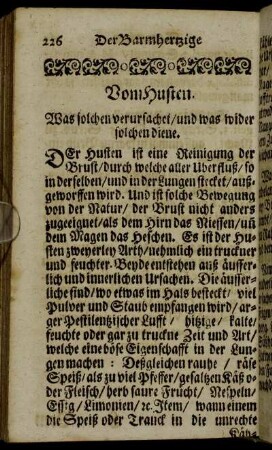 226 Der Barmhertzige
Vom Husten.
Was solchen verursachet/ und was wider
solchen diene.
DEr Husten ist eine Reinigung der
Brust/ durch welche aller Uberfluß/ so
in derselben/ und in der Lungen stecket/ auß-
geworffen wird. Und ist solche Bewegung
von der Natur/ der Brust nicht anders
zugeeignet/ als dem Hirn das Niessen/ uñ
dem Magen das Heschen. Es ist der Hu-
sten zweyerley Arth/ nehmlich ein truckner
und feuchter. Beyde entstehen auß äusser-
lich und innerlichen Ursachen. Die äusser-
liche sind/ wo etwas im Hals besteckt/ viel
Pulver und Staub empfangen wird/ ar-
ger Pestilentzischer Lufft/ hitzige/ kalte/
feuchte oder gar zu truckne Zeit und Art/
welche eine böse Eigenschafft in der Lun-
gen machen: Deßgleichen rauhe/ räse
Speiß/ als zu viel Pfeffer/ gesaltzen Käß o-
der Fleisch/ herb saure Frücht/ Nespeln/
Essig/ Limonien/ ꝛc. Item/ wann einem
die Speiß oder Tranck in die unrechte